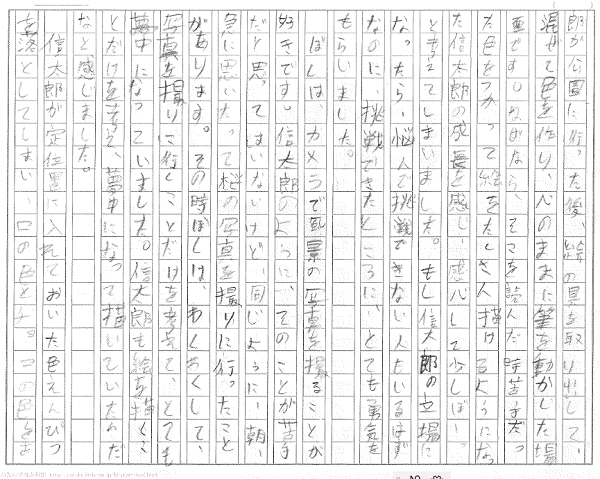 郎が公園に行った後、絵の具を取り出して、
混ぜて色を作り、心のままに筆を動かした場
面です。なぜなら、そこを読んだ時苦手だっ
た色をつかって絵をたくさん描けるようになっ
た信太郎の成長を感じ、感心して少しぼーっ
と考えてしまいました。もし信太郎の立場に
なったら、悩んで挑戦できない人もいるはず
なのに、挑戦できたところに、とても勇気を
もらいました。
ぼくは、カメラで風景の写真を撮ることが
好きです。信太郎のように、そのことが苦手
だと思ってはいないけど、同じように、朝、
急に思いたって桜の写真を撮りに行ったこと
があります。その時ぼくは、わくわくして、
写真を撮りに行くことだけを考えて、とても
夢中になっていました。信太郎も絵を描くこ
とだけを考え、夢中になって描いていたんだ
なと、感じました。
信太郎が定位置に入れておいた色えんぴつ
を落としてしまい、の色との色を